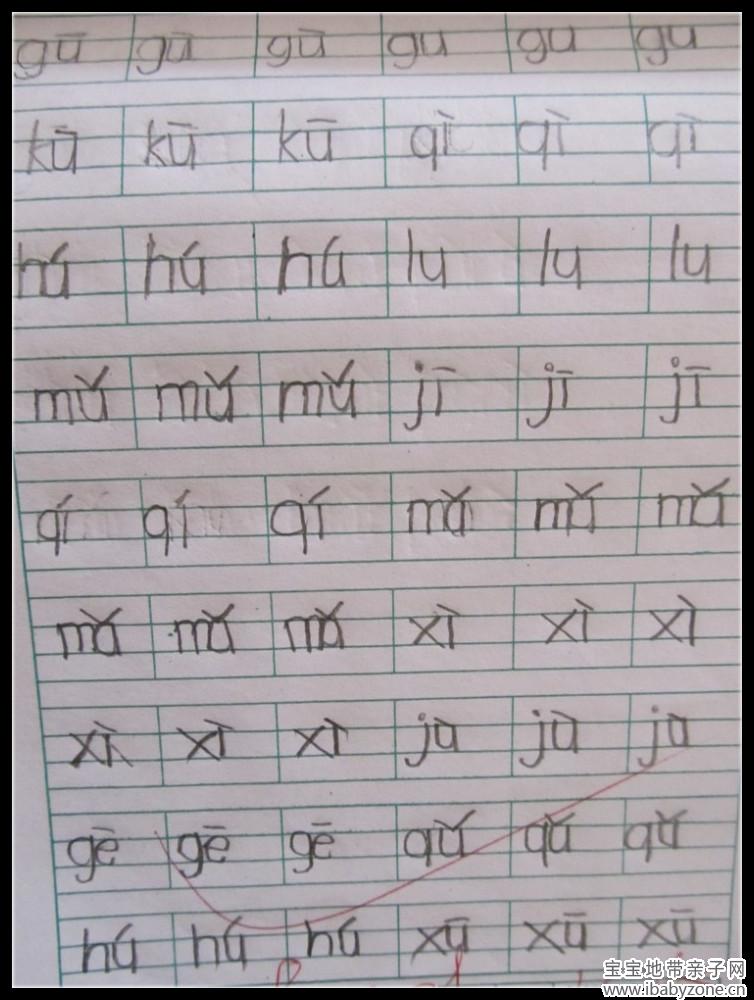 gū gū gū gu gu gu
kū kū kū qì qì qì
hú hú hú lu lu lu
mǔ mǔ mǔ jī jī jī
qí qí qí mǎ mǎ mǎ
mǎ mǎ mǎ xì xì xì
xì xì xì jù jù jù
gē gē gē qǔ qǔ qǔ
hú hú hú xū xū xū
宝宝地带亲子网
www.ibabyzone.cn